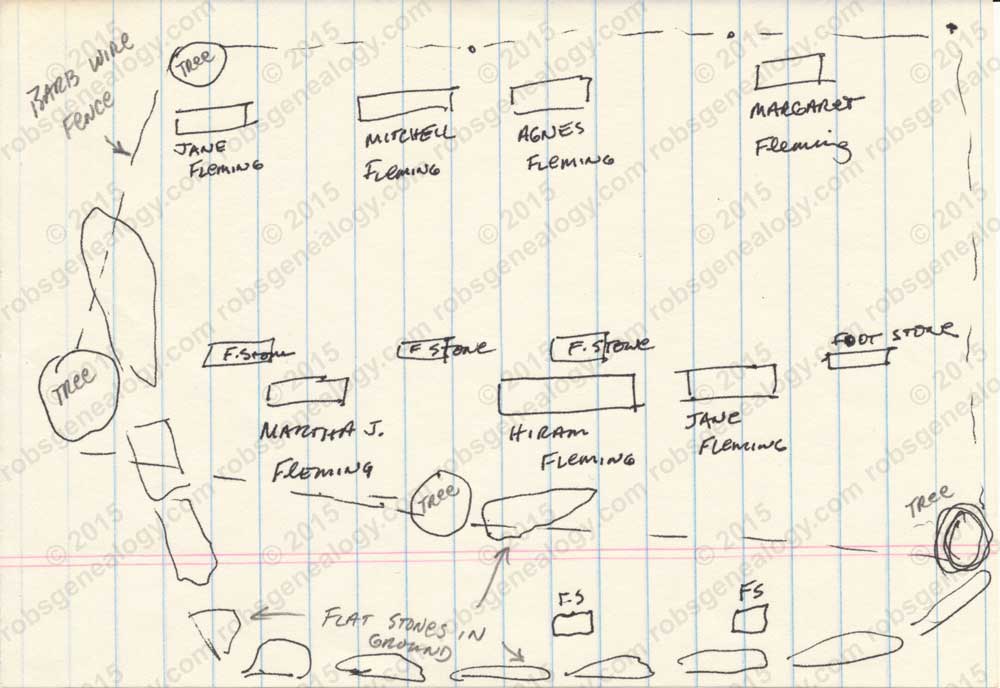 BARB WIRE
FENCE
TREE
JANE
FLEMING
MITCHELL
FLEMING
AGNES
FLEMING
MARGARET
Fleming
TREE
F. STONE
F STONE
F. STONE
FOOT STONE
MARTHA J.
FLEMING
HIRAM
FLEMING
JANE
FLEMING
TREE
TREE
FLAT STONES IN
GROUND
FS
FS
© 2015
robsgenealogy.com